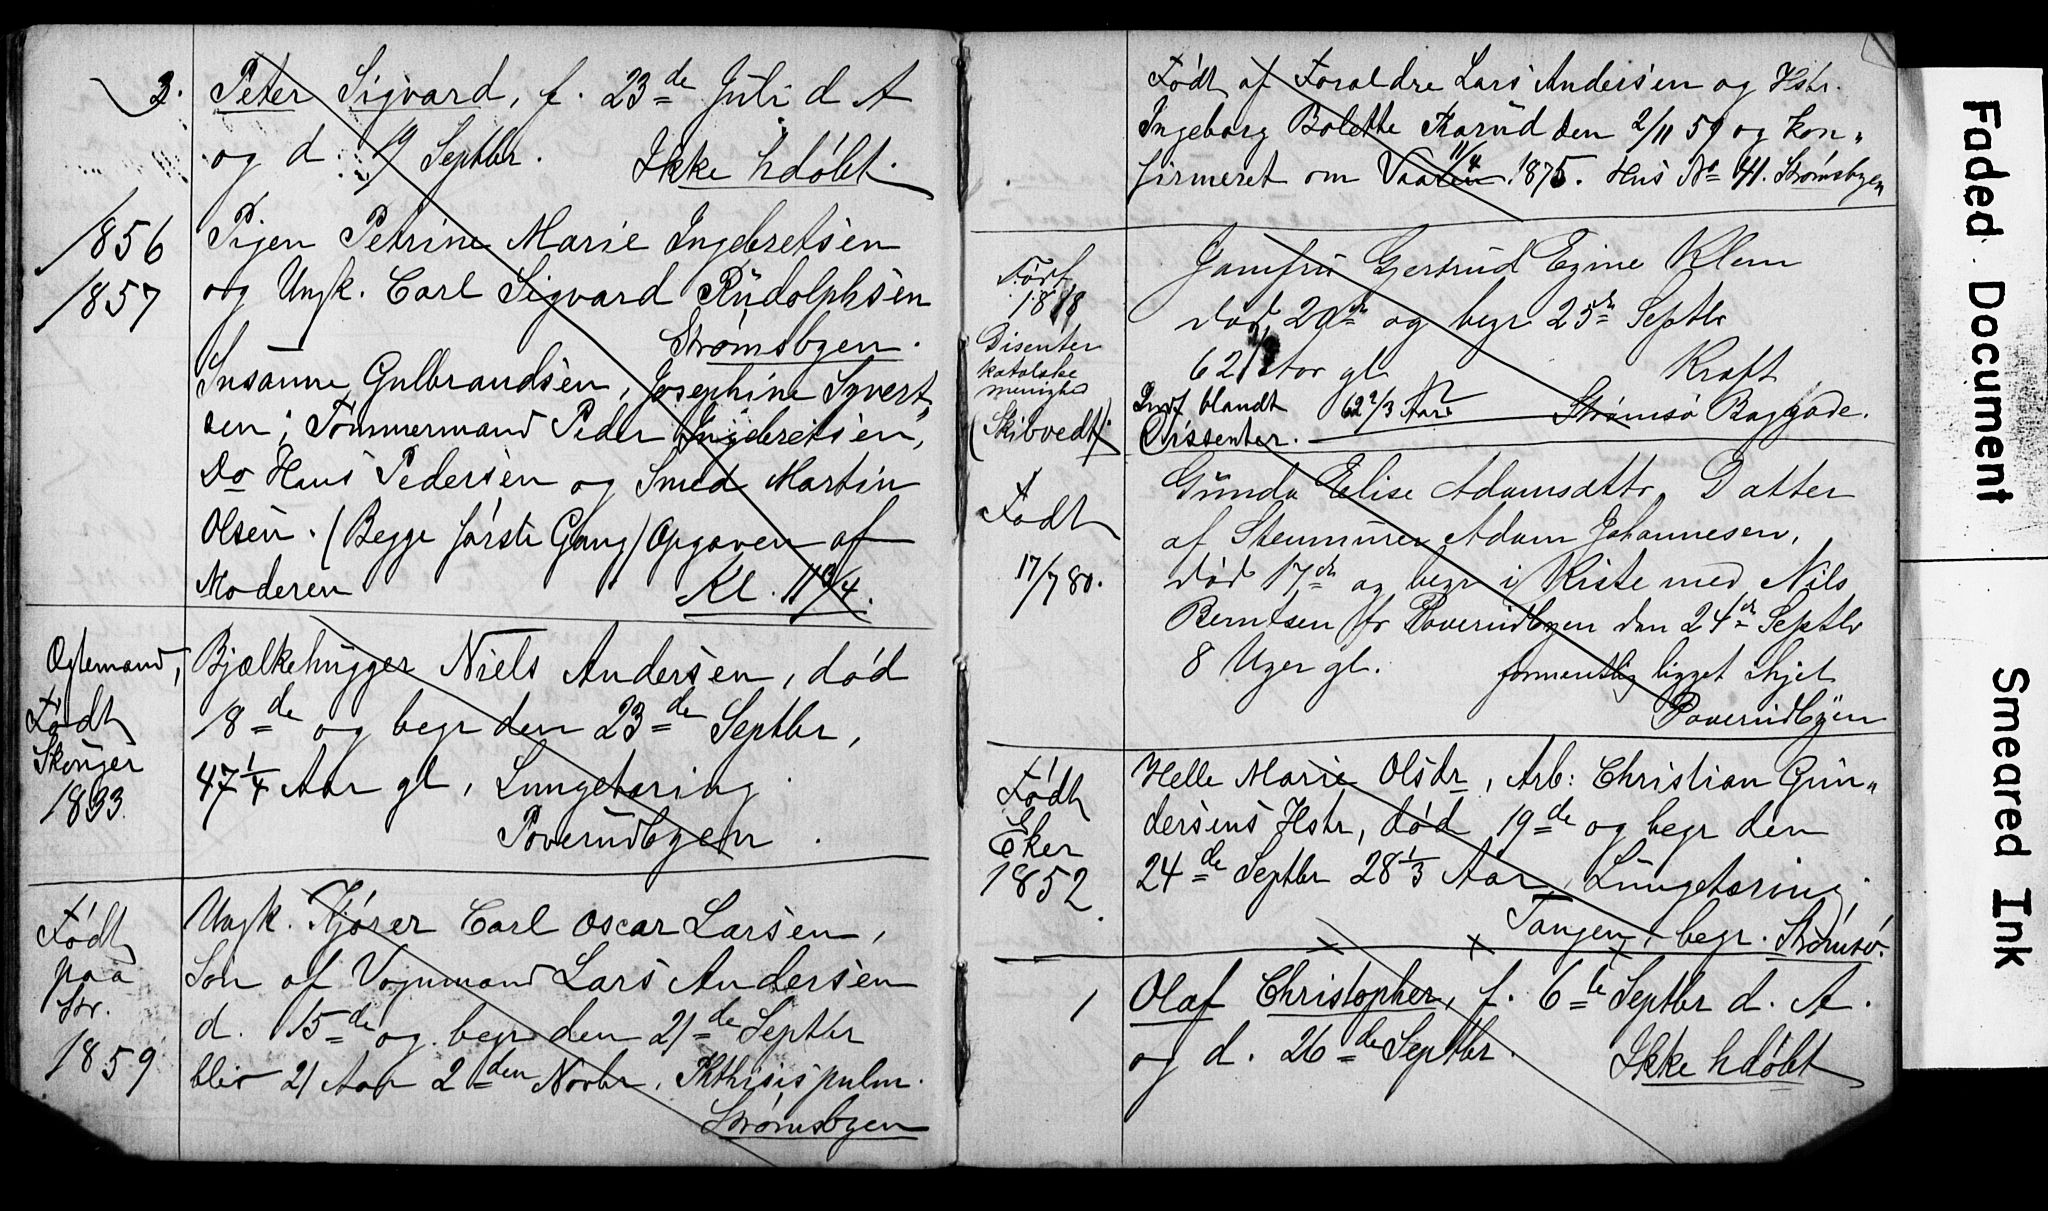 3. Peter Sigvard, f. 23de Juli d A
og d. 19 Septbr. Ikke hdøbt.
1856 Pigen Petrine Marie Ingebretsen
1857 og Ungk. Carl Sigvard Rudolphsen
Strømsbyen.
Susanne Gulbrandsen, Josephine Syvert„
sen; Tømmermand Peder Ingebretsen,
Do Hans Pedersen og Smed Martin
Olsen. (Begge første Gang) Opgaven af
Moderen Kl. 11 3/4.
Ægtemand,
Født
Skouger
1833.
Bjælkehugger Niels Andersen, død
18de og begr den 23de Septbr,
47 1/4 Aar gl, Lungetæring.
Poverudbyen.
Født
paa
Str.
1859
Ungk. Kjører Carl Oscar Larsen,
Søn af Vognmand Lars Andersen
d. 15de og begr den 21de Septbr
blev 21 Aar 2den Novbr. Phthisis pulm.
Strømsbyen
Født af Foraldre Lars Andersen og Hstr.
Ingeborg Bolette Korud den 2/11 59 og kon„
firmeret om Vaaren 11/4 1875. Hus No 41. Strømsbyen
Født
1818
Disenter
katolske
menighed
(Skibvedt)
Jomfru Gjertrud Egine Klem
død 20de og begr 25de Septbr
62 Aar gl Kræft
Indf blandt 62 2/3 Aar Strømsø Baggade.
Dissenter.
Født
17/7 80.
Gunda Elise Adamsdttr, Datter
af Stenmurer Adam Johannesen,
død 17de og begr i Kiste med Nils
Berntsen fr Poverudbyen den 24de Septbr
8 Uger gl. formentlig ligget ihjel
Poverudbyen
Født
Eker
1852.
Helle Marie Olsdr, Arb: Christian Gun„
dersens Hstr, død 19de og begr den
24de Septbr 28 1/3 Aar, Lungetæring.
Tangen, begr. Strømsø.
1 Olaf Christopher, f. 6te Septbr d. A.
og d. 26de Septbr. Ikke hdøbt
Faded Document
Smeared Ink